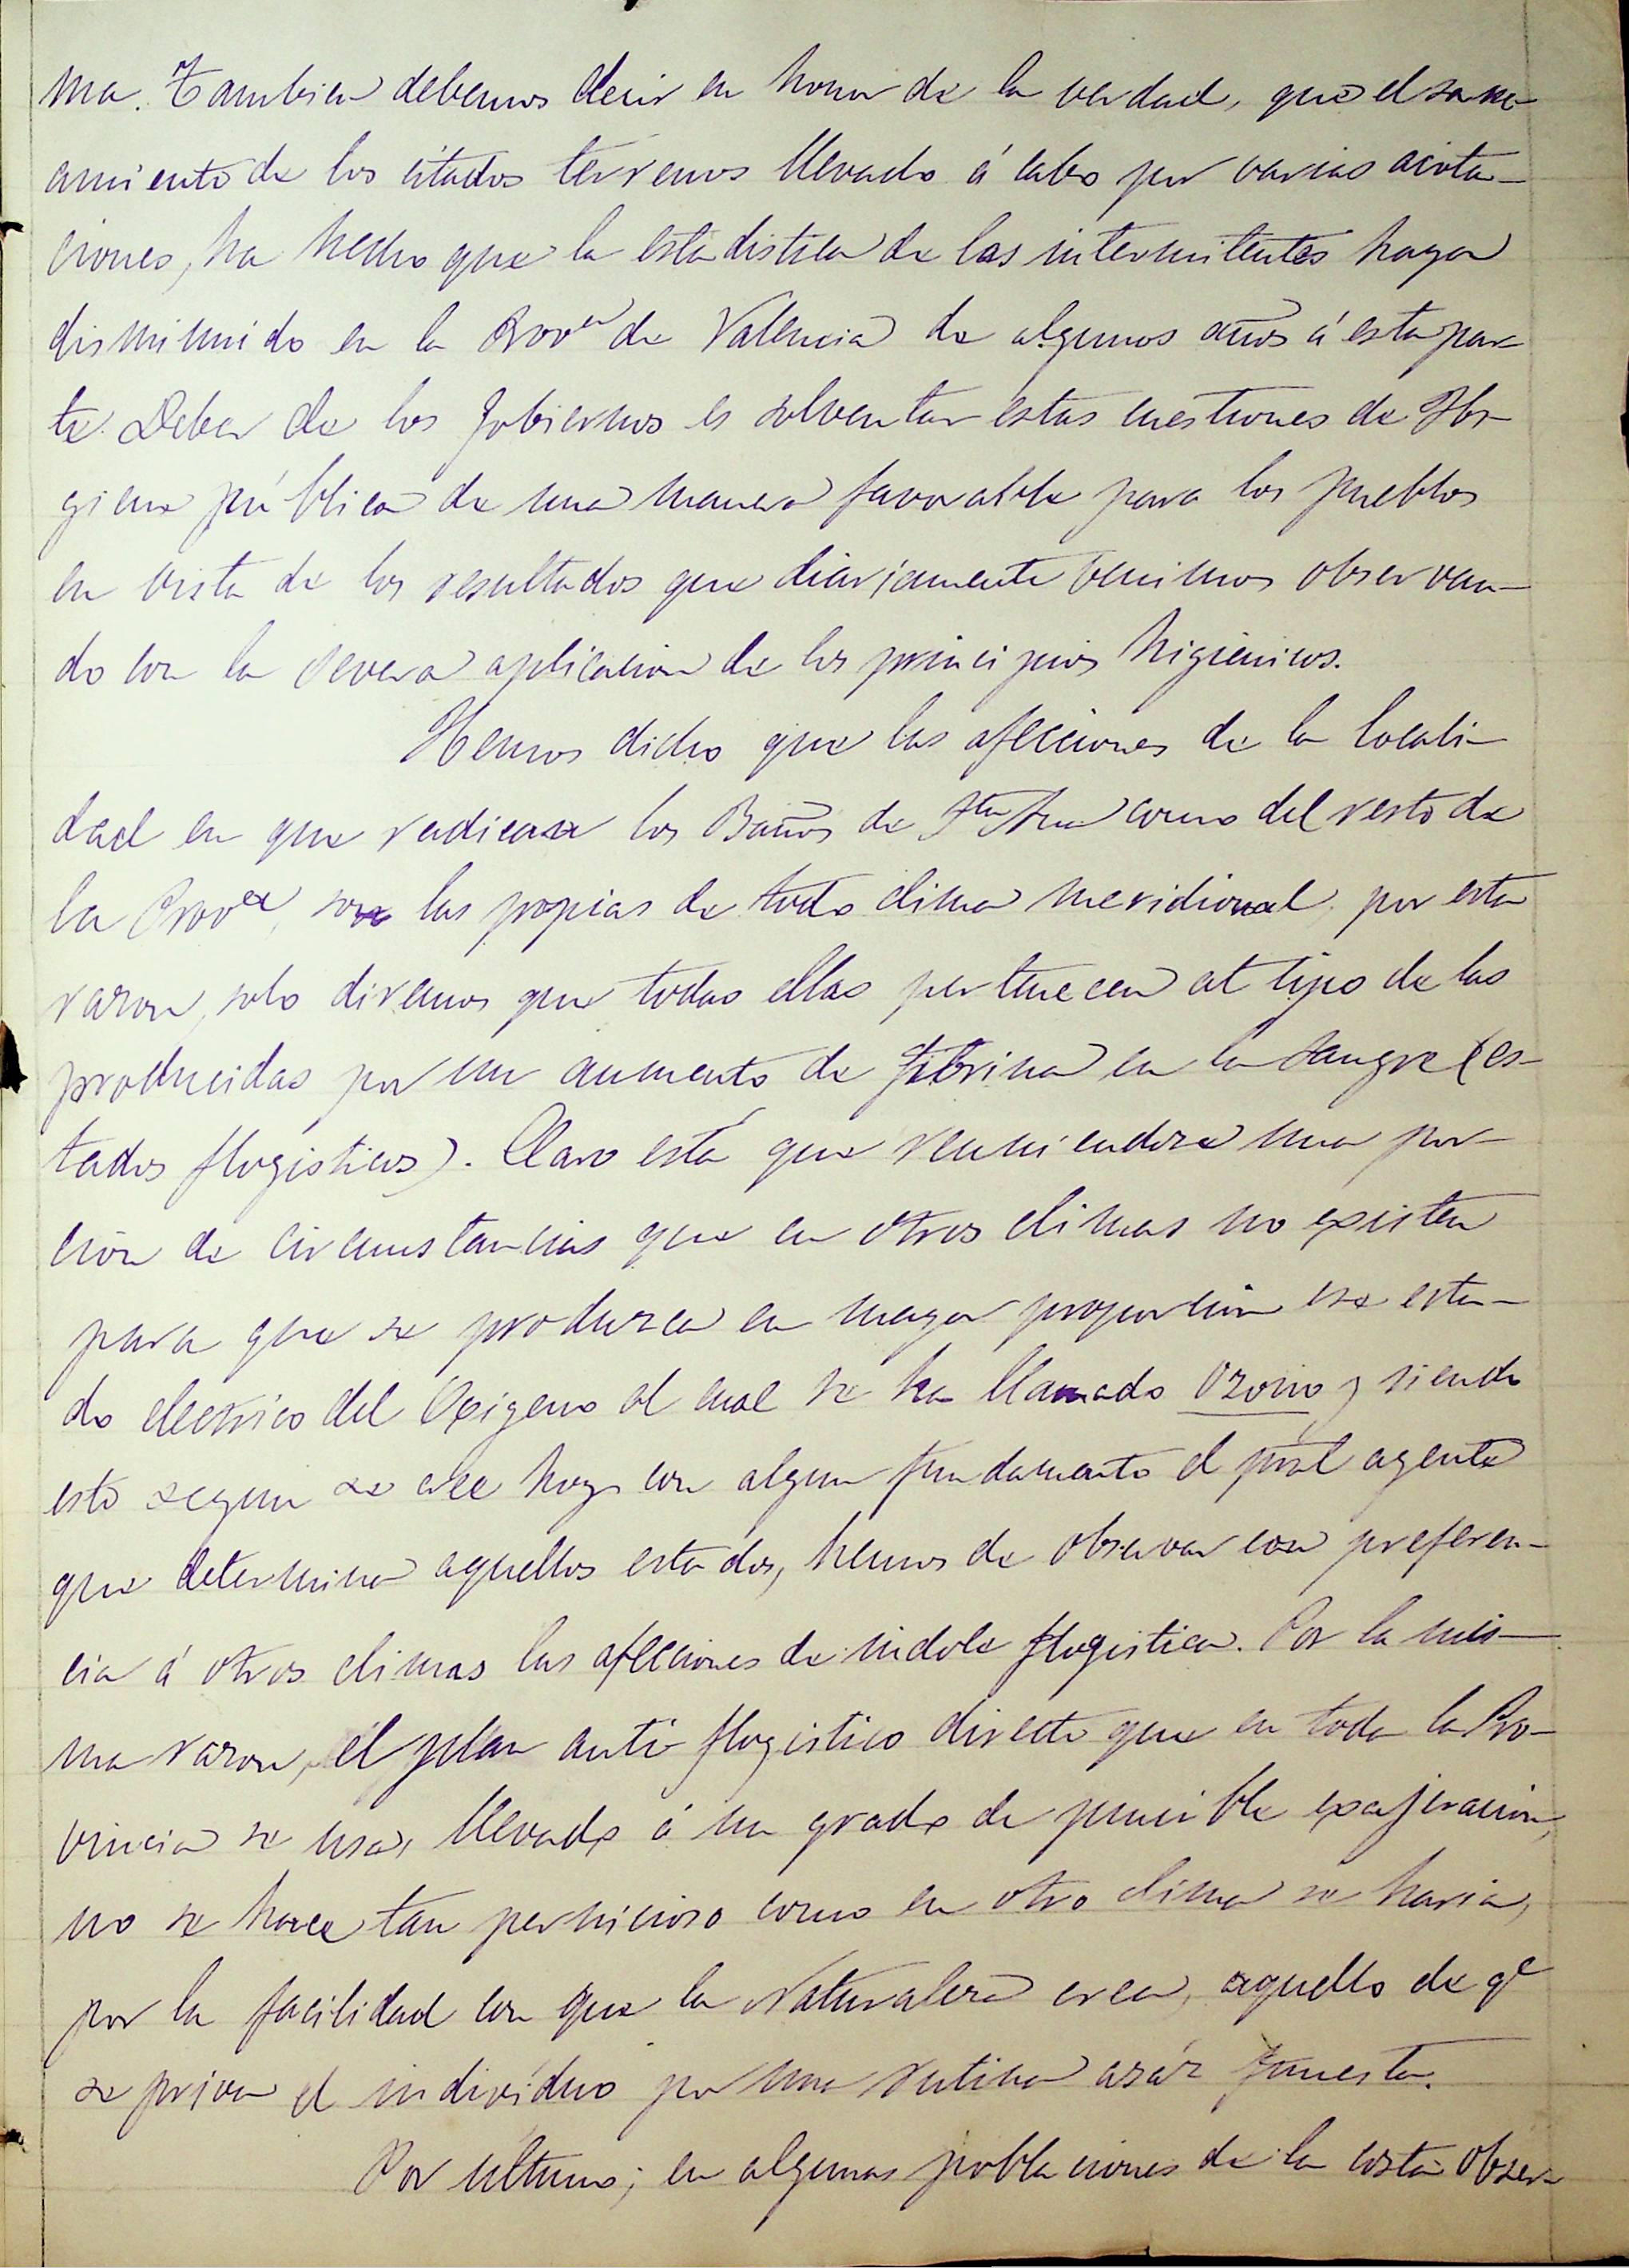 ma. Tambien debemos decir en honor de la verdad, que el sane-
amiento de los citados terrenos llevado á cabo por varias acota-
ciones, ha hecho que la estadistica de las intermitentes haya
disminuido en la Provª de Valencia de algunos años á esta par-
te. Deber de los Gobiernos es solventar estas cuestiones de Hi-
giene pública de una manera favorable para los pueblos
en vista de los resultados que diariamente venimos observan-
do con la severa aplicacion de los principios higienicos.
Hemos dicho que las afecciones de la locali-
dad en que radican los Baños de Sta Ana como del resto de
la Provª, son las propias de todo clima meridional, por esta
razon, solo diremos que todas ellas pertenecen al tipo de las
producidas por un aumento de fibrina en la sangre (es-
tados flogisticos). Claro está que reuniendose una por-
ción de circunstancias que en otros climas no existen
para que se produzca en mayor proporción ese esta-
do electrico del Oxigeno al cual se ha llamado Ozono y siendo
esto segun se cree hoy con algun fundamento el pral agente
que determina aquellos estados, hemos de observar con preferen-
cia á otros climas las afecciones de indole flogistica. Por la mis-
ma razon, el plan anti-flogistico directo que en toda la Pro-
vincia se usa, llevado á un grado de punible exajeración,
no se hace tan pernicioso como en otro clima se haria,
por la facilidad con que la Naturaleza crea, aquello de qe
se priva el individuo por una rutina asáz funesta.
Por ultimo; en algunas poblaciones de la costa obser-